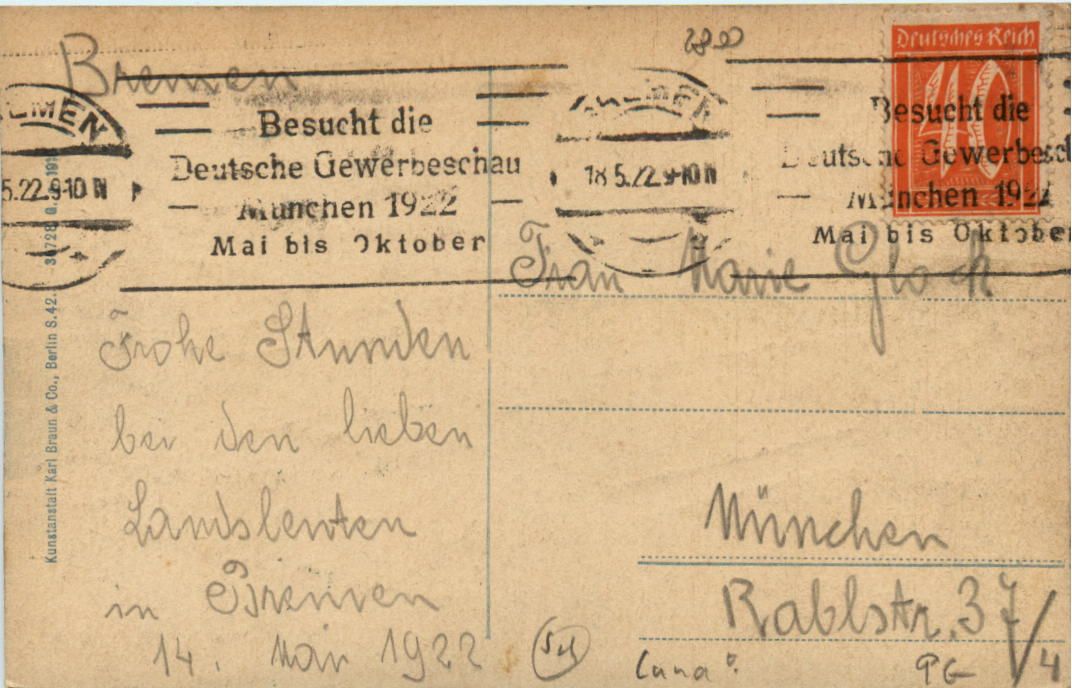 2800
Bremen
Deutsches Reich
40
BREMEN
18.5.22.9-10 N
Besucht die
Deutsche Gewerbeschau
München 1922
Mai bis Oktober
BREMEN
18.5.22.9-10 N
Besucht die
Deutsche Gewerbeschau
München 1922
Mai bis Oktober
Frau Marie Glock
Frohe Stunden
bei den lieben
Landsleuten
in Bremen
14. Mai 1922
München
Rablstr. 37/4
PG
Kunstanstalt Karl Braun & Co., Berlin S.42.